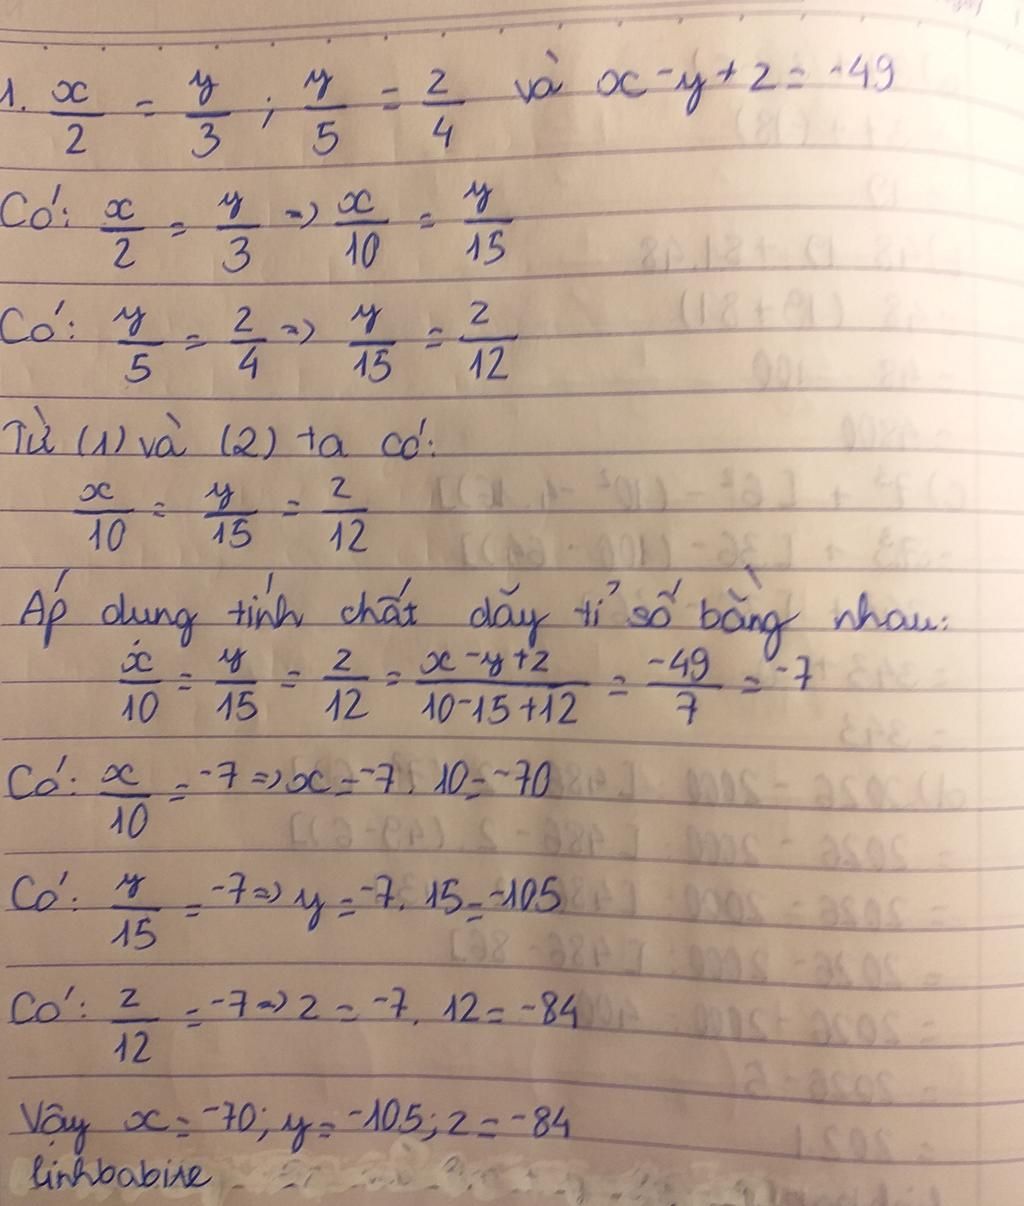 1. x/2 = y/3 ; y/5 = z/4 và x - y + z = -49
Có: x/2 = y/3 => x/10 = y/15
Có: y/5 = z/4 => y/15 = z/12
Từ (1) và (2) ta có:
x/10 = y/15 = z/12
Áp dung tính chất dãy tỉ số bằng nhau:
x/10 = y/15 = z/12 = x-y+z/10-15+12 = -49/7 = -7
Có: x/10 = -7 => x = -7. 10 = -70
Có: y/15 = -7 => y = -7. 15 = -105
Có: z/12 = -7 => z = -7. 12 = -84
Vậy x = -70; y = -105; z = -84
linhbabire